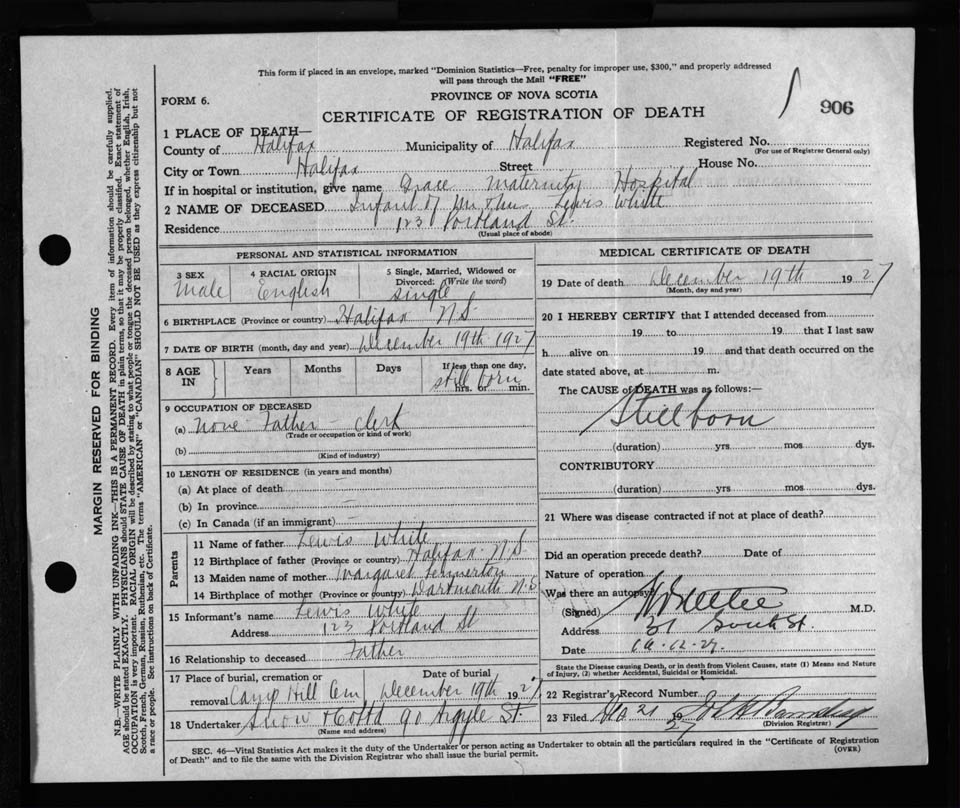 This form if placed in an envelope, marked "Dominion Statistics—Free, penalty for improper use, $300," and properly addressed
will pass through the Mail "FREE"
PROVINCE OF NOVA SCOTIA
906
FORM 6.
CERTIFICATE OF REGISTRATION OF DEATH
1 PLACE OF DEATH—
County of Halifax Municipality of Halifax Registered No.
(For use of Registrar General only)
City or Town Halifax Street House No.
If in hospital or institution, give name Grace Maternity Hospital
2 NAME OF DECEASED Infant of Mr & Mrs Lewis White
Residence 123 Portland St
(Usual place of abode)
PERSONAL AND STATISTICAL INFORMATION
3 SEX
Male
4 RACIAL ORIGIN
English
5 Single, Married, Widowed or
Divorced: (Write the word)
single
6 BIRTHPLACE (Province or country) Halifax N S.
7 DATE OF BIRTH (month, day and year) December 19th 1927
8 AGE IN
Years Months Days
If less than one day,
still born
hrs. or min.
9 OCCUPATION OF DECEASED
(a) None Father - Clerk
(Trade or occupation or kind of work)
(b)
(Kind of industry)
10 LENGTH OF RESIDENCE (in years and months)
(a) At place of death
(b) In province
(c) In Canada (if an immigrant)
Parents
11 Name of father Lewis White
12 Birthplace of father (Province or country) Halifax N.S.
13 Maiden name of mother Margaret
14 Birthplace of mother (Province or country) Dartmouth N.S
15 Informant's name Lewis White
Address 123 Portland St
16 Relationship to deceased Father
17 Place of burial, cremation or Date of burial
removal Camp Hill Cem December 19th 1927
18 Undertaker Snow & Co Ltd 90 Argyle St.
(Name and address)
MEDICAL CERTIFICATE OF DEATH
19 Date of death December 19th 1927
(Month, day and year)
20 I HEREBY CERTIFY that I attended deceased from
19 to 19 that I last saw
h alive on 19 and that death occurred on the
date stated above, at m.
The CAUSE of DEATH was as follows:—
Stillborn
(duration) yrs mos dys.
CONTRIBUTORY
(duration) yrs mos dys.
21 Where was disease contracted if not at place of death?
Did an operation precede death? Date of
Nature of operation
Was there an autopsy?
(Signed) M.D.
Address 31 South St.
Date
State the Disease causing Death, or in death from Violent Causes, state (1) Means and Nature
of Injury, (2) whether Accidental, Suicidal or Homicidal.
22 Registrar's Record Number
23 Filed 21 1927
(Division Registrar)
SEC. 46—Vital Statistics Act makes it the duty of the Undertaker or person acting as Undertaker to obtain all the particulars required in the "Certificate of Registration
of Death" and to file the same with the Division Registrar who shall issue the burial permit.
(OVER)
MARGIN RESERVED FOR BINDING
N.B.—WRITE PLAINLY WITH UNFADING INK—THIS IS A PERMANENT RECORD. Every item of information should be carefully supplied.
AGE should be stated EXACTLY. PHYSICIANS should STATE CAUSE OF DEATH in plain terms, so that it may be properly classified. Exact statement of
OCCUPATION is very important. RACIAL ORIGIN will be described by stating to what people or tongue the deceased person belonged, whether English, Irish,
Scotch, French, German, Russian, Ruthenian, etc. The terms "AMERICAN" or "CANADIAN" SHOULD NOT BE USED as they express citizenship but not
a race or people. See instructions on back of Certificate.